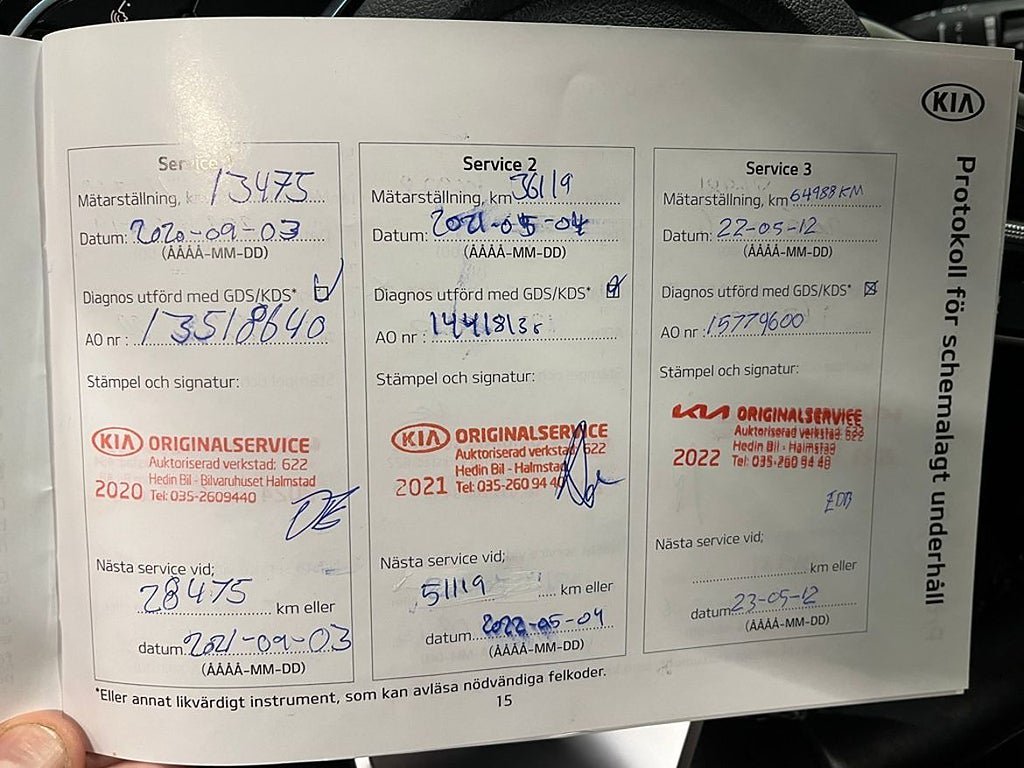 KIA
Protokoll för schemalagt underhåll
Service 1
Mätarställning, km 13475
Datum: 2020-09-03
(ÅÅÅÅ-MM-DD)
Diagnos utförd med GDS/KDS*
AO nr : 13518640
Stämpel och signatur:
KIA ORIGINALSERVICE
Auktoriserad verkstad: 622
Hedin Bil - Bilvaruhuset Halmstad
2020 Tel: 035-2609440
Nästa service vid;
28475 km eller
datum 2021-09-03
(ÅÅÅÅ-MM-DD)
Service 2
Mätarställning, km 36119
Datum: 2021-05-04
(ÅÅÅÅ-MM-DD)
Diagnos utförd med GDS/KDS*
AO nr :
Stämpel och signatur:
KIA ORIGINALSERVICE
Auktoriserad verkstad: 622
Hedin Bil - Halmstad
2021 Tel: 035-260 94 40
Nästa service vid;
51119 km eller
datum 2022-05-04
(ÅÅÅÅ-MM-DD)
Service 3
Mätarställning, km 64988 KM
Datum: 22-05-12
(ÅÅÅÅ-MM-DD)
Diagnos utförd med GDS/KDS*
AO nr : 15779600
Stämpel och signatur:
KIA ORIGINALSERVICE
Auktoriserad verkstad: 622
Hedin Bil - Halmstad
2022 Tel: 035-260 94 40
EDB
Nästa service vid;
km eller
datum 23-05-12
(ÅÅÅÅ-MM-DD)
*Eller annat likvärdigt instrument, som kan avläsa nödvändiga felkoder.
15